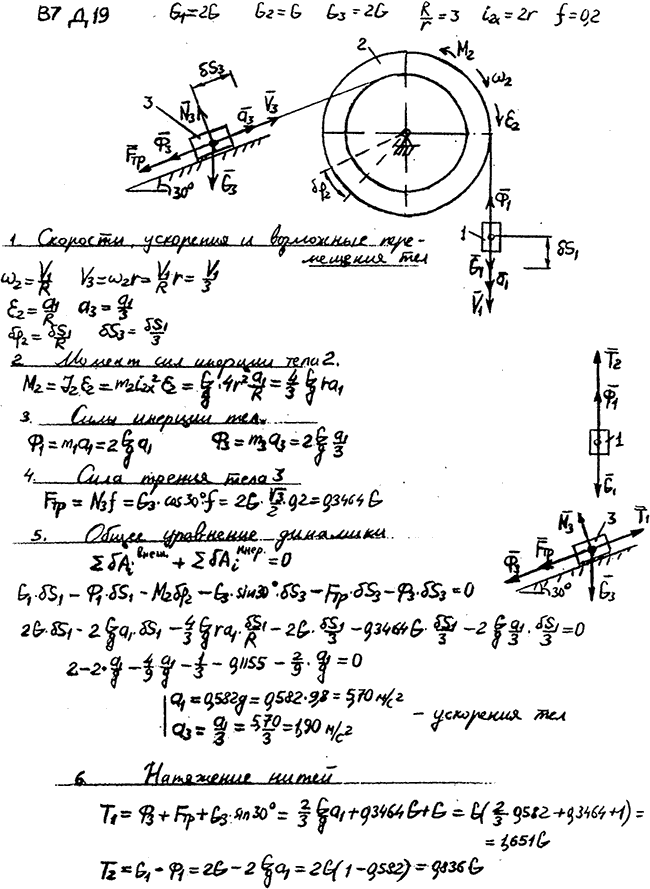 В7 Д19 G₁=2G G₂=G G₃=2G R/r=3 i₂ₓ=2r f=0,2
2 M̅₂
δS₃ ω̅₂
3 N̅₃ a̅₃ V̅₃ ε̅₂
F̅тр Φ̅₃
30° G̅₃ δφ₂ Φ̅₁
1 δS₁
G̅₁ a̅₁
V̅₁
1. Скорости, ускорения и возможные перемещения тел
ω₂=V₁/R V₃=ω₂r=V₁/R r=V₁/3
ε₂=a₁/R a₃=a₁/3
δφ₂=δS₁/R δS₃=δS₁/3
2. Момент сил инерции тела 2.
M₂=J₂ε₂=m₂i₂ₓ²ε₂=G/g·4r² a₁/R=4/3 G/g ra₁
3. Силы инерции тел.
Φ₁=m₁a₁=2G/g a₁ Φ₃=m₃a₃=2G/g a₁/3
4. Сила трения тела 3
Fтр=N₃f=G₃·cos30°f=2G·√3/2·0,2=0,3464G
T̅₂
Φ̅₁
1
G̅₁
5. Общее уравнение динамики
ΣδAᵢ внеш. + ΣδAᵢ инер. =0
N̅₃ 3 T̅₁
Φ̅₃ F̅тр
30° G̅₃
G₁·δS₁-Φ₁·δS₁-M₂δφ₂-G₃·sin30°·δS₃-Fтр·δS₃-Φ₃·δS₃=0
2G·δS₁-2G/g a₁·δS₁-4/3 G/g ra₁·δS₁/R-2G·δS₁/3-0,3464G·δS₁/3-2G/g a₁/3·δS₁/3=0
2-2·a₁/g-4/9 a₁/g-1/3-0,1155-2/9·a₁/g=0
a₁=0,582g=0,582·9,8=5,70 м/с²
a₃=a₁/3=5,70/3=1,90 м/с² - ускорения тел
6. Натяжение нитей
T₁=Φ₃+Fтр+G₃·sin30°=2/3 G/g a₁+0,3464G+G=G(2/3 0,582+0,3464+1)=
=1,651G
T₂=G₁-Φ₁=2G-2G/g a₁=2G(1-0,582)=0,836G